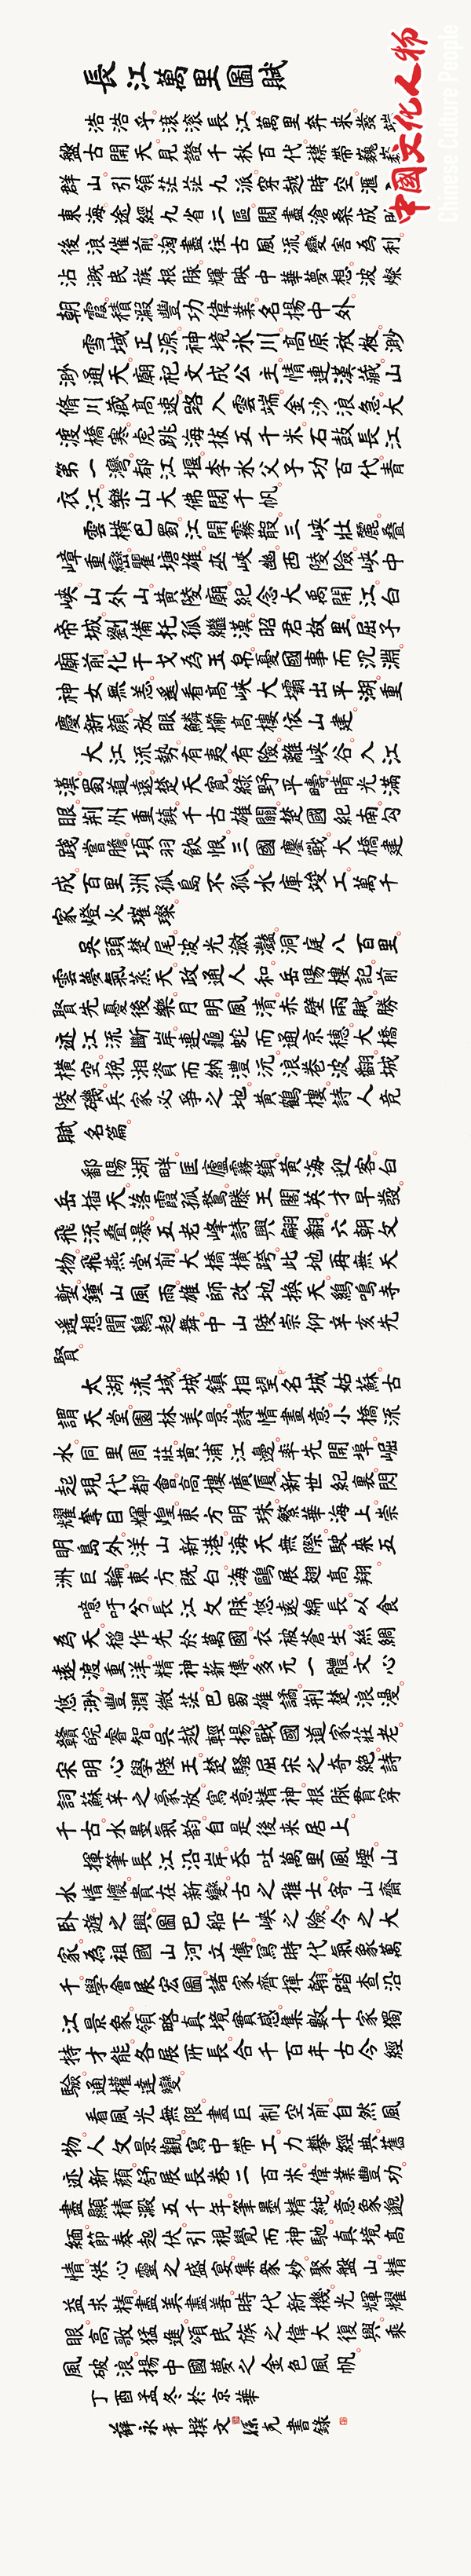 長江萬里圖賦
中國文化人物
Chinese Culture People
浩浩乎滾滾長江萬里奔來發端
盤古開天見證千秋百代襟帶巍巍
群山引領茫茫九派穿越時空滙
東海途經九省二區閱盡滄桑成
後浪催前淘盡往古風流變害為利
沾溉民族根脉輝映中華夢想波燦
朝霞積澱豐功偉業名揚中外
雪域正源神境氷川高原放牧渺
渺通天廟祀文成公主情連漢藏山
脩川藏高速路入雲端金沙浪急大
渡橋寒虎跳海拔五千米石鼓長江
第一灣都江堰李氷父子功百代青
衣江樂山大佛閱千帆
雲橫巴蜀江開霧散三峽壯麗叠
嶂重巒瞿塘雄巫峽幽西陵險峽中
峽山外山黄陵廟紀念大禹開江白
帝城劉備托孤繼漢昭君故里屈子
廟前化干戈為玉帛憂國事而沉淵
神女無恙遥看高峽大壩出平湖重
慶新顔放眼鱗櫛高樓依山建
大江流勢有夷有險離峽谷入江
漢蜀道遠楚天寬緑野平疇晴光滿
眼荆州重鎮千古雄關楚國紀南勾
踐嘗膽項羽飲恨三國鏖戰大橋建
成百里洲孤島不孤水庫竣工萬千
家燈火璀璨
吴頭楚尾波光瀲灧洞庭八百里
雲夢氣蒸天政通人和岳陽樓記前
賢先憂後樂月明風清赤壁兩賦勝
迹江流斷岸連龜蛇而通京穗大橋
橫空挽湘資而納澧沅浪卷波翻城
陵磯兵家必爭之地黄鶴樓詩人競
賦名篇
鄱陽湖畔匡廬霧鎖黄海迎客白
岳插天落霞孤鶩滕王閣英才早發
飛流叠瀑五老峰詩興翩翩六朝文
物飛燕堂前大橋橫跨此地再無天
塹鍾山風雨雄師改地換天鷄鳴寺
遥想聞鷄起舞中山陵崇仰辛亥先
賢
太湖流域城鎮相望名城姑蘇古
謂天堂園林美景詩情畫意小橋流
水同里周莊黄浦江邊率先開埠崛
起現代都會高樓廣厦新世紀裏閃
耀奪目輝煌東方明珠繁華海上崇
明島外洋山新港海天無際駛來五
洲巨輪東方既白海鷗展翅高翔
噫吁兮長江文脉悠遠綿長以食
為天稻作先於萬國衣被蒼生絲綢
遠渡重洋精神薪傳多元一體文心
悠渺豐潤微茫巴蜀雄譎荆楚浪漫
贛皖睿智吴越輕揚戰國道家莊老
宋明心學陸王楚騷屈宋之奇絶詩
詞蘇辛之豪放寫意精神根脉貫穿
千古水墨氣韵自是後來居上
揮筆長江沿岸吞吐萬里風煙山
水情懷貴在新變古之雅士寄山齋
卧遊之興圖巴船下峽之險今之大
家為祖國山河立傳寫時代氣象萬
千學會展宏圖諸家齊揮翰踏查沿
江景象領略真境實感集數十家獨
特才能各展所長合千百年古今經
驗通權達變
看風光無限畫巨制空前自然風
物人文景觀寫中帶工力攀經典舊
迹新顔舒展長卷二百米偉業豐功
盡顯積澱五千年筆墨精純意象邈
緬節奏起伏引視覺而神馳真境高
情供心靈之盛宴集衆妙聚盤山精
益求精盡美盡善時代新機光輝耀
眼高歌猛進頌民族之偉大復興乘
風破浪揚中國夢之金色風帆
丁酉孟冬於京華
薛永年撰文孫克書錄